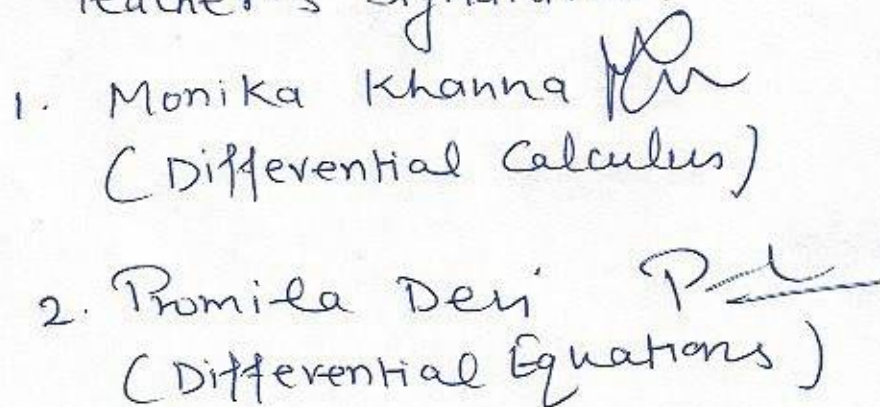 Teacher's Signature
1. Monika Khanna
(Differential Calculus)
2. Promila Devi
(Differential Equations)